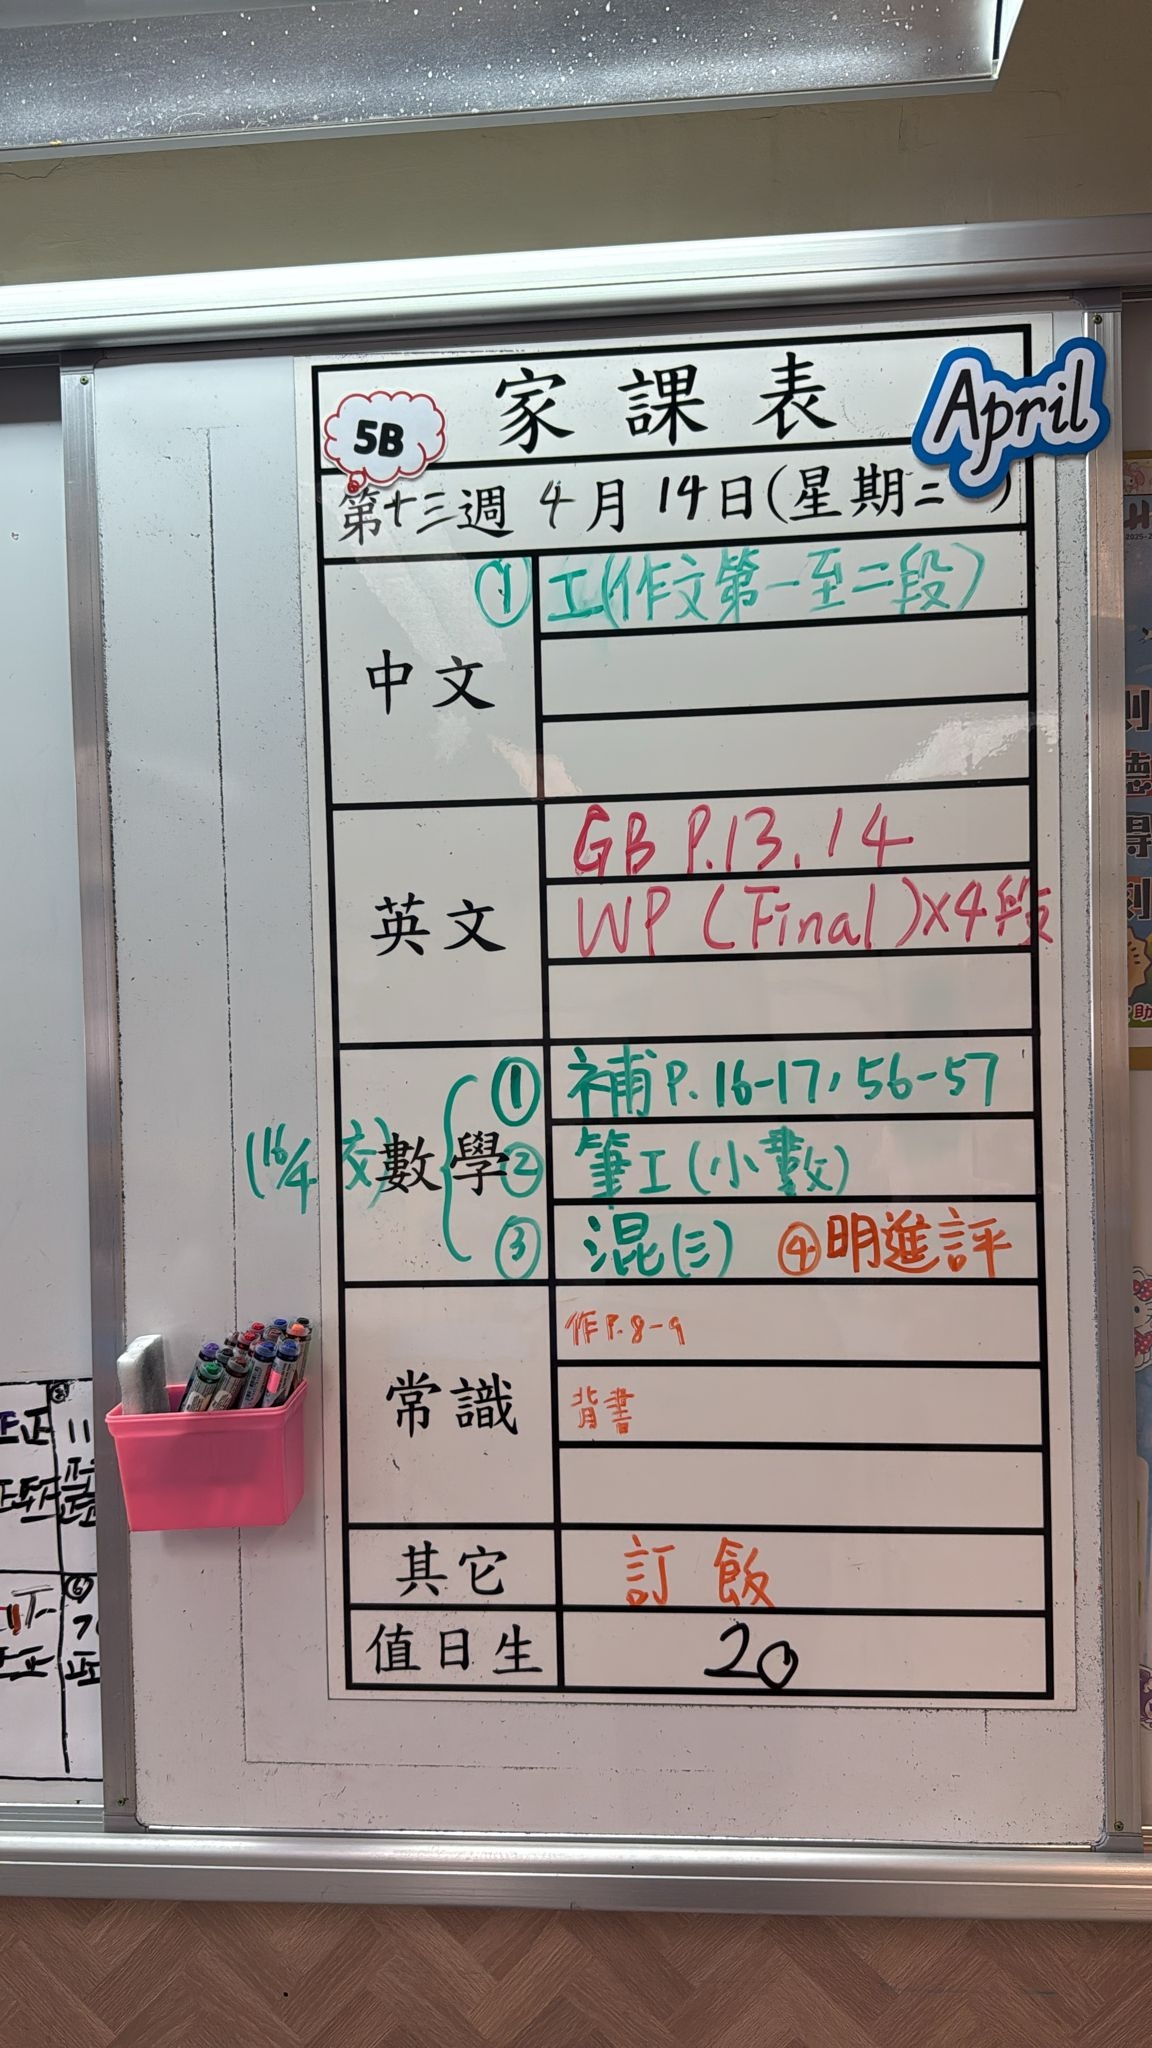 家課表
5B
April
第十三週 4月14日(星期二)
中文
① 工(作文第一至二段)
英文
GB P.13, 14
WP (Final)×4段
數學
(16/4 交)
① 補P.16-17, 56-57
② 筆工(小數)
③ 混(三) ④明進評
常識
作P.8-9
背書
其它
訂飯
值日生
20